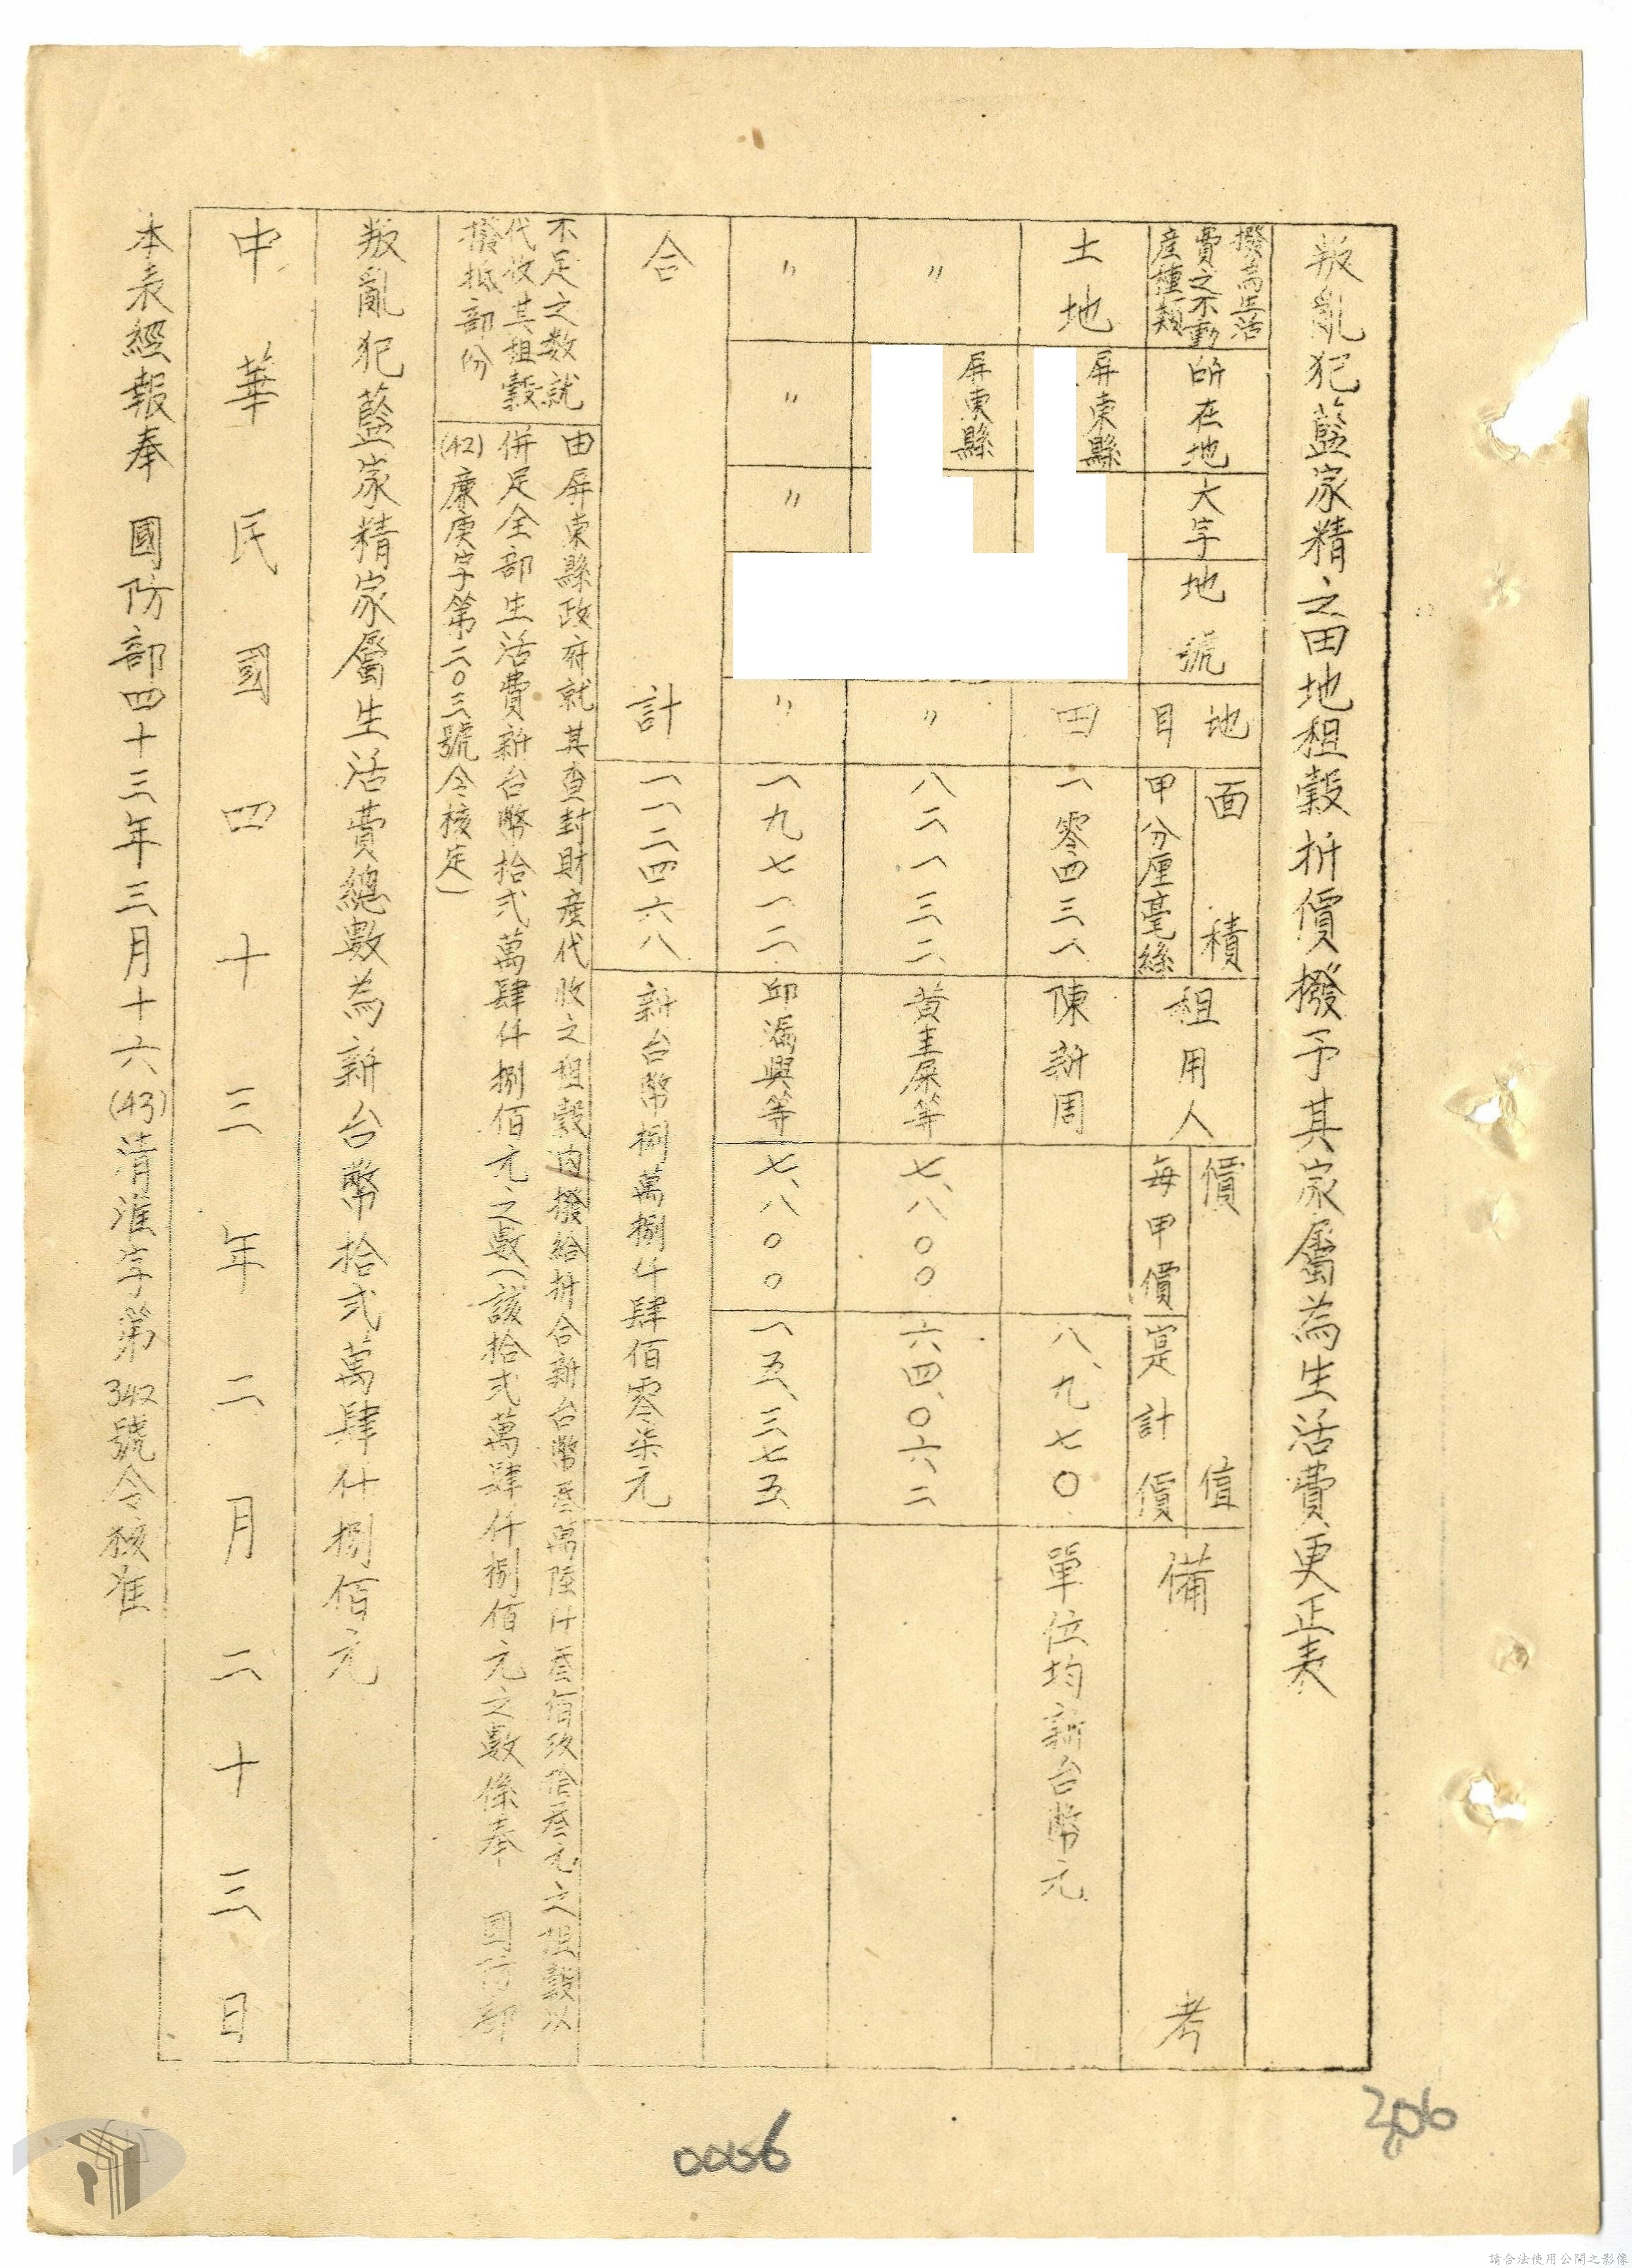 叛亂犯藍家精之田地租穀折價撥予其家屬為生活費更正表
撥為生活費之不動產種類
所在地
大字
地號
地目
面積
甲分厘毫絲
租用人
價值
每甲價
寔計價
備考
土地
屏東縣
田
一零四三一
陳新周
八、九七〇
單位均新台幣元
〃
屏東縣
〃
八二一三二
黃圭屎等
七、八〇〇
六四、〇六二
〃
〃
〃
〃
一九七一二
邱滿興等
七、八〇〇
一五、三七五
合計
一一二四六八
新台幣捌萬捌仟肆佰零柒元
不足之数就代收其租穀撥抵部份
由屏東縣政府就其查封財產代收之租穀內撥給折合新台幣叁萬陸仟叁佰玖拾叁元之租穀以
併足全部生活費新台幣拾弍萬肆仟捌佰元之數(該拾弍萬肆仟捌佰元之數係奉 國防部
(42)廉庚字第二〇三號令核定)
叛亂犯藍家精家屬生活費總數為新台幣拾弍萬肆仟捌佰元
中華民國四十三年二月二十三日
本表經報奉 國防部四十三年三月十六(43)清淮字第342號令核准
0066
206
請合法使用公開之影像